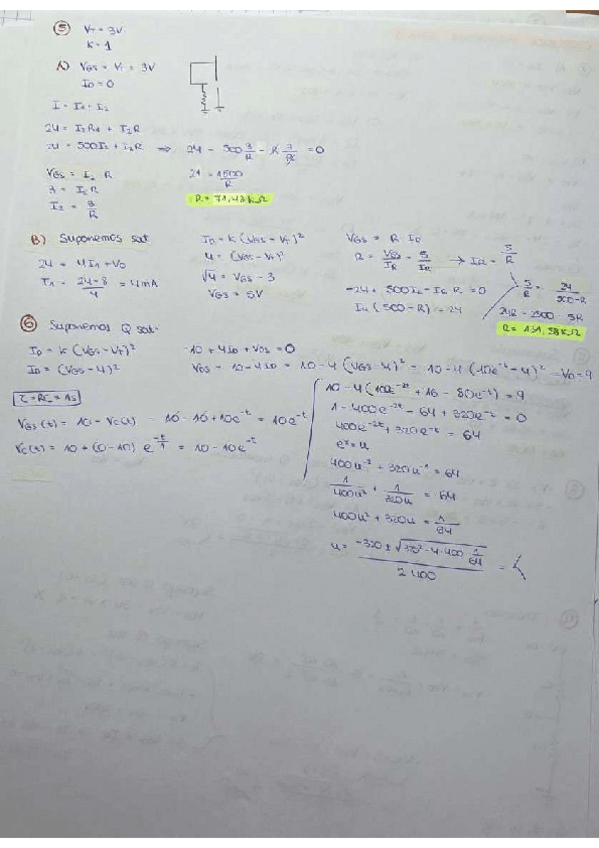 ⑤ VT = 3V
K = 1
A) VGS = VT = 3V
ID = 0
24 = I2R1 + I2R
24 = 500I2 + I2R ⇒ 24 - 500 3/R - R 3/R = 0
VGS = I2 R
3 = I2 R
I2 = 3/R
21 = 1500/R
R = 71,43 kΩ
B) Suponemos sat
24 = 4I1 + VD
I1 = (24-8)/4 = 4mA
ID = K (VGS - VT)²
4 = (VGS - VT)²
√4 = VGS - 3
VGS = 5V
VGS = R IR
R = VGS/IR = 5/IR → IR = 5/R
-24 + 500 IR - IR R = 0
IR (500 - R) = 24
5/R = 24/(500-R)
24R = 2500 - 5R
R = 131,58 kΩ
⑥ Suponemos Q sat.
ID = K (VGS - VT)²
ID = (VGS - 4)²
-10 + 4ID + VDS = 0
VDS = 10 - 4ID = 10 - 4 (VGS - 4)² = 10 - 4 (10e^-t - 4)² = VD = 9
τ = RC = 1s
VGS (t) = 10 - VC(t) = 10 - 10 + 10e^-t = 10e^-t
VC(t) = 10 + (0 - 10) e^(-t/1) = 10 - 10e^-t
10 - 4 (100e^-2t + 16 - 80e^-t) = 9
1 - 400e^-2t - 64 + 320e^-t = 0
400e^-2t + 320e^-t = 64
e^x = u
400u^-2 + 320u^-1 = 64
1/400u² + 1/320u = 64
400u² + 320u = 1/64
u = (-320 ± √(320² - 4·400 1/64))/(2·400) =